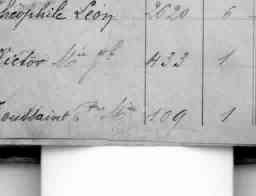 Théophile Léon 2020 6
Victor Mie Jh 433 1
Toussaint Mie 109 1